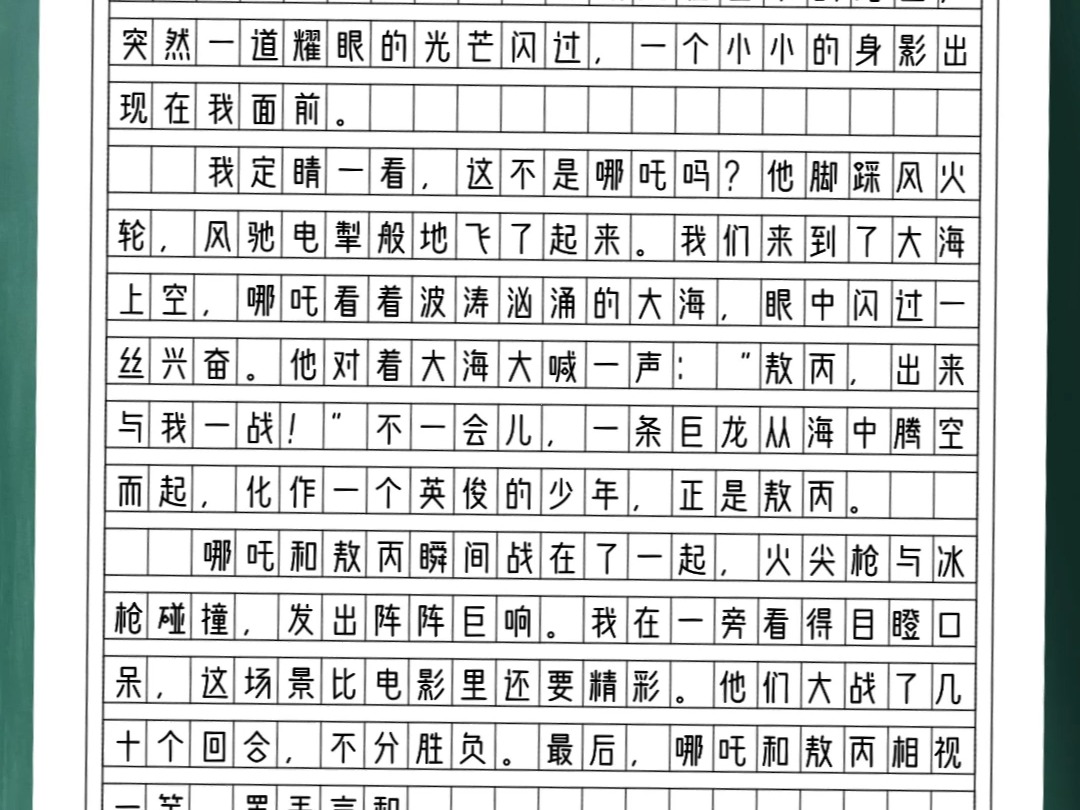 突然一道耀眼的光芒闪过，一个小小的身影出
现在我面前。
我定睛一看，这不是哪吒吗？他脚踩风火
轮，风驰电掣般地飞了起来。我们来到了大海
上空，哪吒看着波涛汹涌的大海，眼中闪过一
丝兴奋。他对着大海大喊一声：“敖丙，出来
与我一战！”不一会儿，一条巨龙从海中腾空
而起，化作一个英俊的少年，正是敖丙。
哪吒和敖丙瞬间战在了一起，火尖枪与冰
枪碰撞，发出阵阵巨响。我在一旁看得目瞪口
呆，这场景比电影里还要精彩。他们大战了几
十个回合，不分胜负。最后，哪吒和敖丙相视